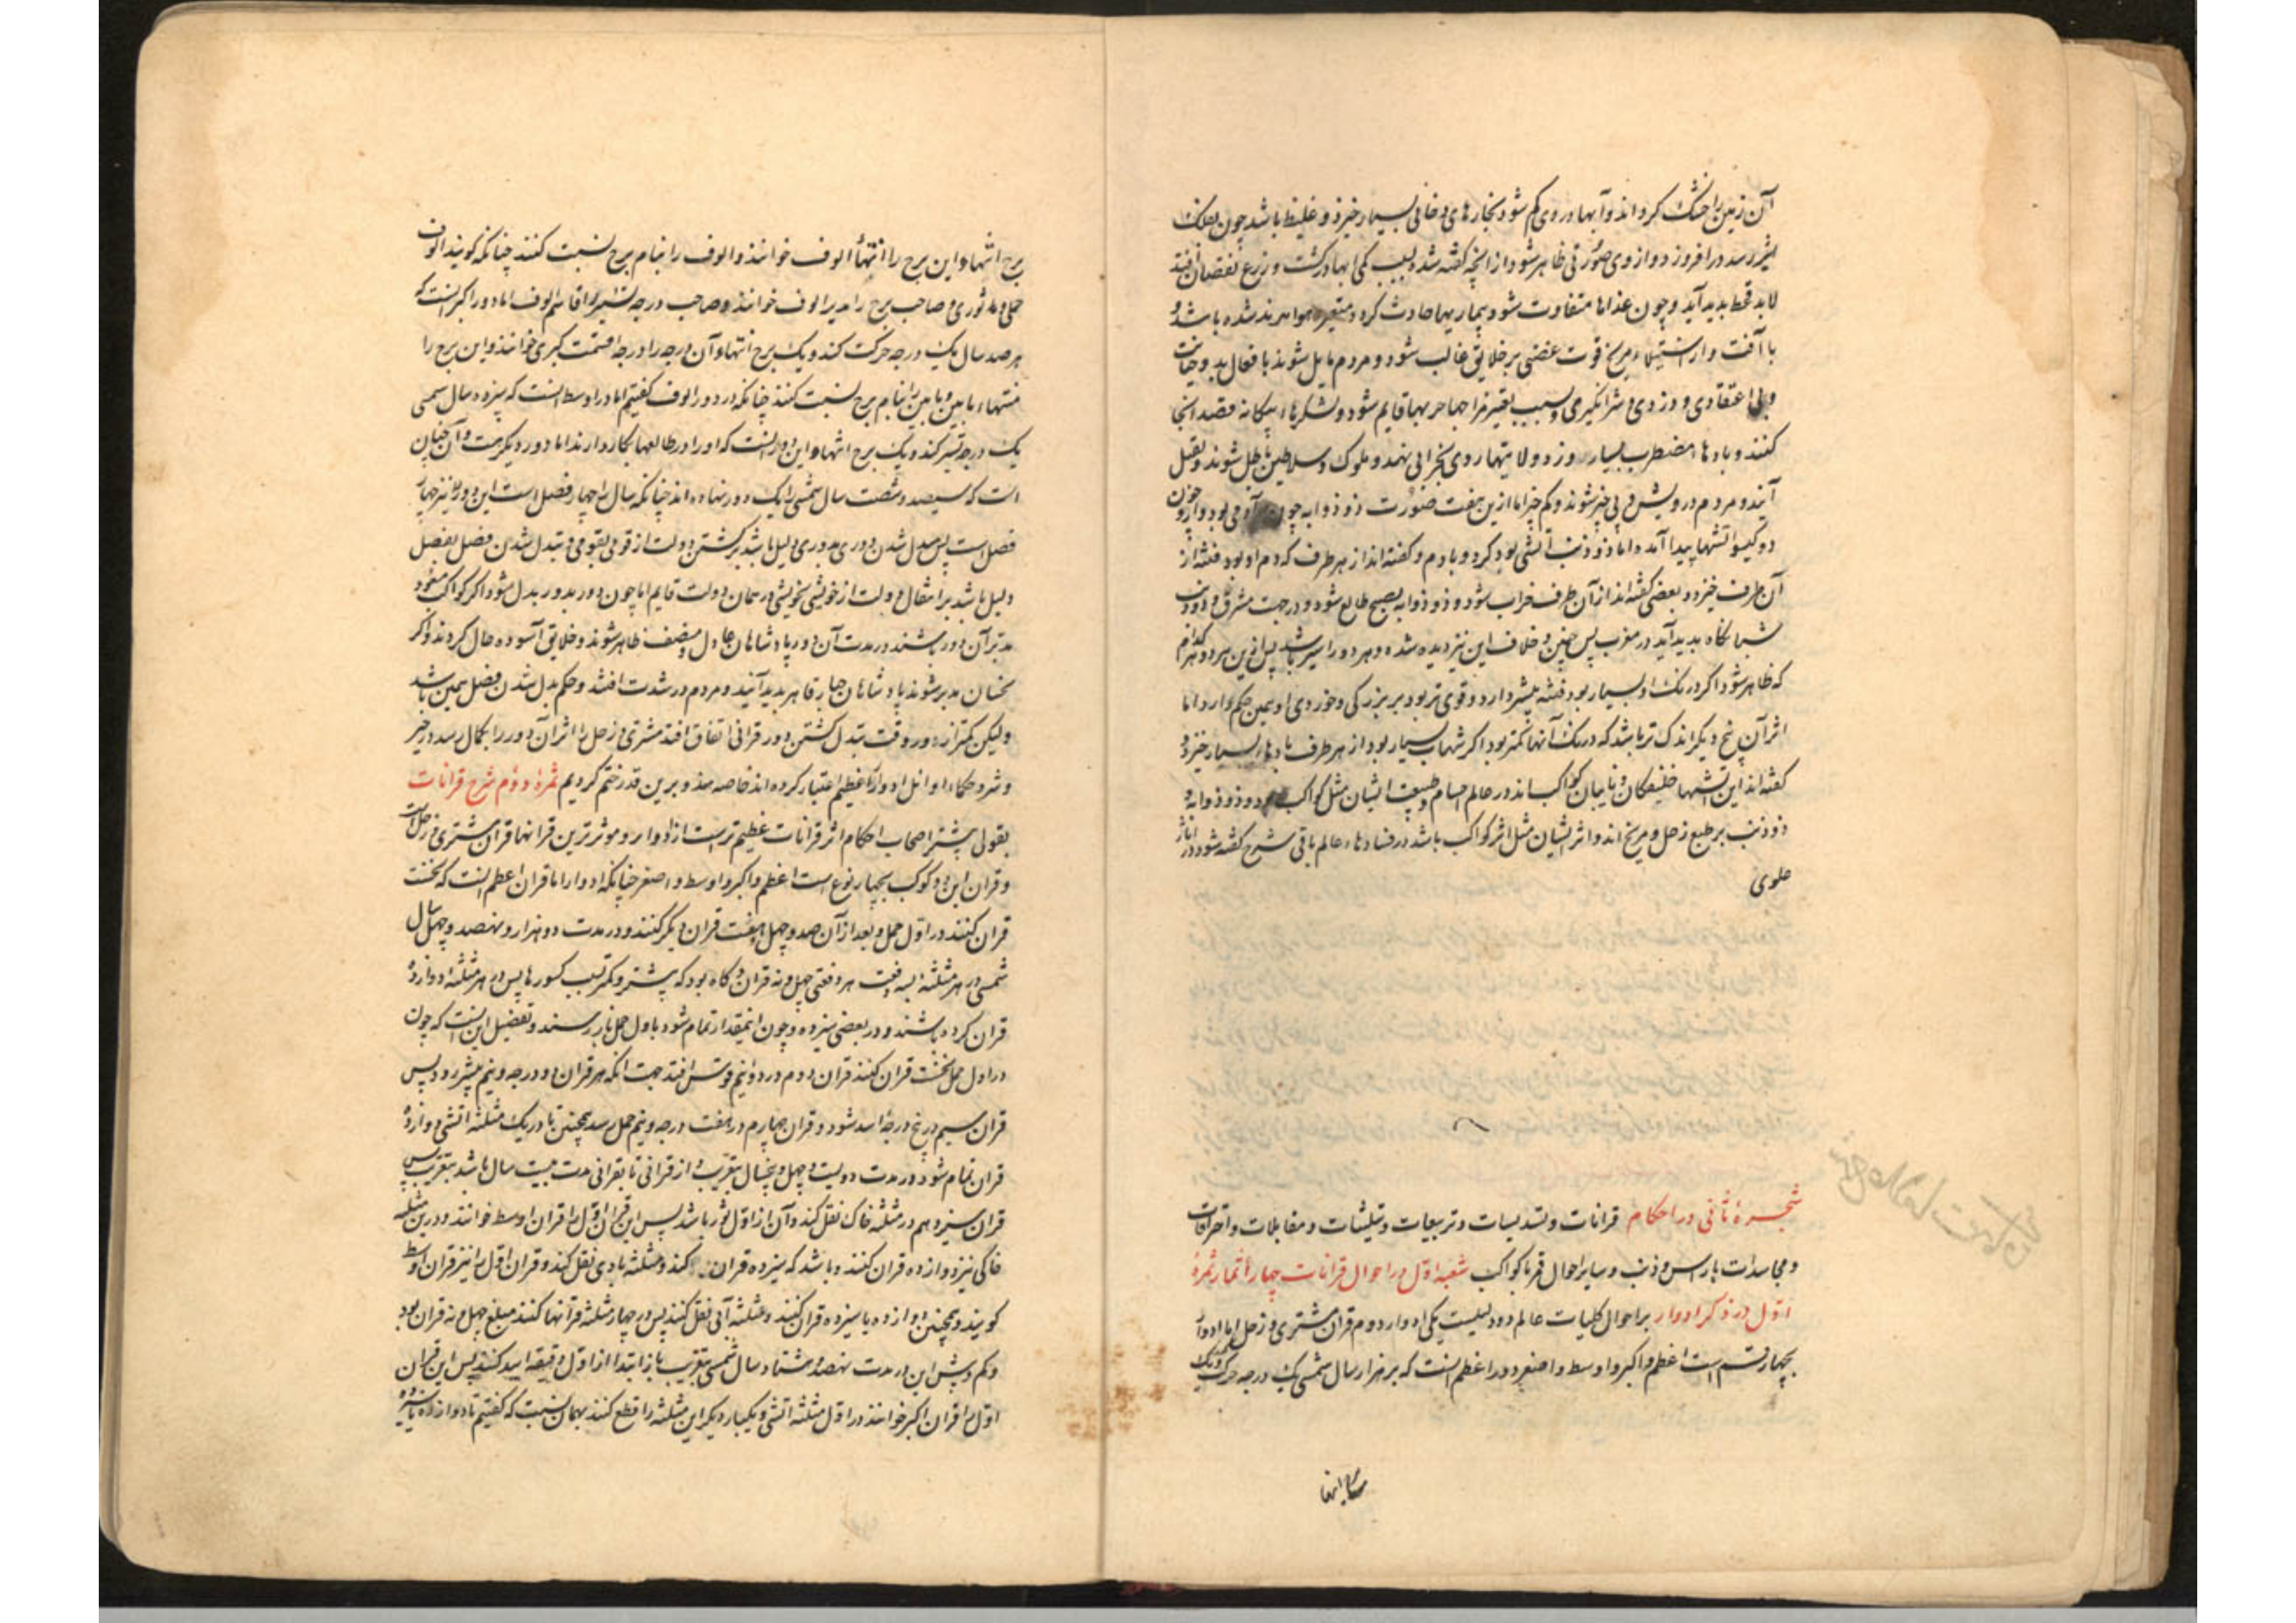 آن زمین را خشک کرداند و آبها در وی کم شود بخارهای دخانی بسیار خیزد و غلیظ باشد چون بفلک
اثیر رسد درافروزد و از وی صورتی ظاهر شود و از آنچه گفته شد بسبب کمی ابها در کشت و زرع نقصان افتد
لابد قحط بدید آید و چون غذاها متفاوت شود بیماریها حادث کردد و متغیر هوا مرند شده باشد و
با آفت و از استیلاء مریخ قوت غضبی بر خلایق غالب شود و مردم مایل شوند بافعال بد و خیانت
و بی اعتقادی و دزدی و شرانگیزی و بسبب تغیر مزاجها حربها قایم شود و لشکرهاء بیکانه قصد انجا
کنند و بادهاء مضطرب بسیار وزد و ولایتها روی بخرابی نهد و ملوک و سلاطین باطل شوند و بقتل
آیند و مردم درویش و بی خیر شوند و کم خیر اما ازین هفت صورت ذو ذوابه چون آدمی بود و ازو چون
دو کیسو آتشها پیدا آمده اما ذو ذنب آتشی بود کرد و با دم و کفته‌اند از هر طرف که دم او بود فتنه از
آن طرف خیزد و بعضی کفته‌اند از آن طرف خراب شود و ذو ذوابه بصبح طالع شود و در جهت مشرق و ذو ذنب
شبانکاه بدید آید در مغرب پس چنین و خلاف این نیز دیده شده و هر دو را سیر باشد پس ازین هر دو کدام
که ظاهر شود اگر درنک او بسیار بود فتنه بیشتر دارد و قوی تر بود بر بزرکی و خوردی او همین حکم دارد اما
اثر آن پنج دیکر اندک تر باشد که درنک آنها کمتر بود اکر شهاب بسیار بود از هر طرف بادهاء بسیار خیزد و
کفته‌اند این آتشها خلیفکان و نایبان کواکب اند در عالم اجسام و طبیعت ایشان مثل کواکب بود و ذو ذوابه و
ذو ذنب بر طبع زحل و مریخ اند و اثر ایشان مثل اثر کواکب باشد در فسادهاء عالم باقی شرح کفته شود در اثار
علوی
شجرهٔ ثانی در احکام قرانات و تسدیسات و تربیعات و تثلیثات و مقابلات و احتراقات
و مجاسدات باراس و ذنب و سایر احوال قمر با کواکب شعبه اول در احوال قرانات چهار اثمار ثمرهٔ
اول در ذکر ادوار بر احوال کلیات عالم دو دلیلست یکی ادوار دوم قران مشتری و زحل اما ادوار
بچهار قسم است اعظم و اکبر و اوسط و اصغر دور اعظم انست که بر هزار سال شمسی یک درجه حرکت و یک
برج انتها و این برج را انتهاء الوف خوانند و الوف را بنام برج نسبت کنند چنانکه کویند الوف
حملی و ثوری و صاحب برج را مدبر الوف خوانند و صاحب درجه تسییر را قاسم الوف اما دور اکبر انست که
هر صد سال یک درجه حرکت کند و یک برج انتها و آن درجه را درجه قسمت کبری خوانند و این برج را
منتهاء مابین و مابین را بنام برج نسبت کنند چنانکه در دور الوف کفتیم اما دور اوسط انست که بهر ده سال شمسی
یک درجه تسییر کند و یک برج انتها و این دور انست که او را در طالعها بکار دارند اما دور دیکرست و آن چنان
است که سیصد و شصت سال شمسی را یک دور نهاده‌اند چنانکه سال را چهار فصل است این دور را نیز چهار
فصل است پس مبدل شدن دوری بدوری دلیل باشد بر کشتن دولت از قومی بقومی و تبدل شدن فصل بفصل
دلیل باشد بر انتقال دولت از خویشی بخویشی در همان دولت قایم اما چون دور بدور بدل شود اکر کواکب سعود
مدبر آن دور باشند در مدت آن دور پادشاهان عادل و منصف ظاهر شوند و خلایق آسوده حال کردند و اکر
نحسان مدبر شوند پادشاهان جبار قاهر بدید آیند و مردم در شدت افتند و حکم بدل شدن فصل همین باشد
ولیکن کمتر از دور وقت تبدل کشتن دور قرانی اتفاق افتد مشتری و زحل را اثر آن دور را بکمال رسد در خیر
و شر و حکماء اوایل ادوار را عظیم اعتبار کرده‌اند خاصه هند و برین قدر ختم کردیم ثمرهٔ دوم شرح قرانات
بقول بیشتر اصحاب احکام اثر قرانات عظیم ترست از ادوار و موثرترین قرانها قران مشتری و زحل است
و قران این دو کوکب بچهار نوع است اعظم و اکبر و اوسط و اصغر چنانکه ادوار اما قران اعظم انست که نخست
قران کنند در اول حمل و بعد از آن صد و چهل و هفت قران دیکر کنند و در مدت دو هزار و نهصد و چهل سال
شمسی در هر مثلثه بسه دفعت هر دفعتی چهل و نه قران و کاه بود که بیشتر و کمتر بسبب کسورها پس در هر مثلثه دوازده
قران کرده باشند و در بعضی سیزده و چون اینمقدار تمام شود باول حمل باز رسند و تفصیل این انست که چون
در اول حمل نخست قران کنند قران دوم در دو و نیم قوس افتد جهت انکه هر قران دو درجه و نیم بیشتر رود پس
قران سیم در پنج درجهٔ اسد شود و قران چهارم در هفت درجه و نیم حمل رسد همچنین تا در یک مثلثه آتشی دوازده
قران تمام شود در مدت دویست و چهل و پنجسال بتقریب و از قرانی تا بقرانی مدت بیست سال باشد بتقریب پس
قران سیزدهم در مثلثه خاکی نقل کند و آن از اول ثور باشد پس این قران اول را قران اوسط خوانند و درین مثلثه
خاکی نیز دوازده قران کنند و باشد که سیزده قران کند و بمثلثه بادی نقل کند و قران اول را نیز قران اوسط
کویند و همچنین دوازده یا سیزده قران کنند و بمثلثه آبی نقل کنند پس در چهار مثلثه قرآنها کنند مبلغ چهل و نه قران بود
و کم و بیش این در مدت نهصد و هشتاد سال شمسی بتقریب باز ابتدا از اول دقیقه اسد کنند پس این قران
اول را قران اکبر خوانند در اول مثلثه آتشی و یکبار دیکر این مثلثه را قطع کنند بهمان نسبت که کفتیم تا دوازده یا سیزده